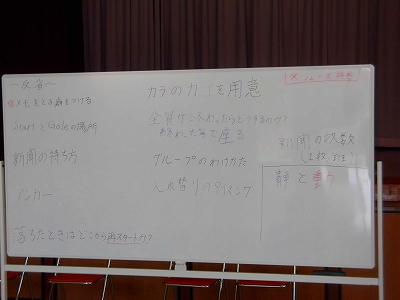 ～反省～
メモをとる癖をつける
StartとGoalの場所
新聞の持ち方
アンカー
落ちたときはどこから再スタートか?
カラのカゴを用意
全員がおわったらどうするのか?
おわった人で座る
グループのわけかた
入れ替りのタイミング
新聞の枚数
静と動